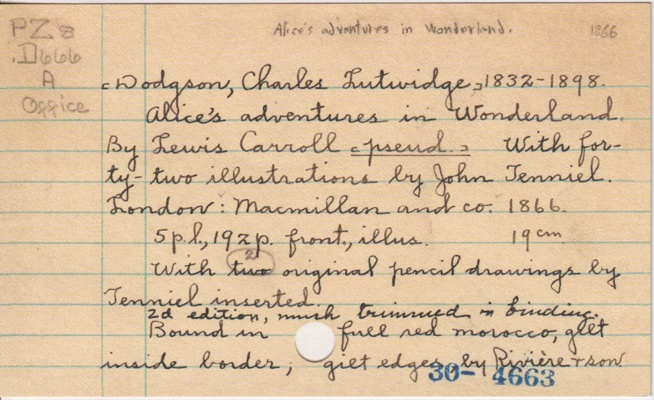 Alice's adventures in Wonderland. 1866
PZ8
.D666
A
Office
[Dodgson, Charles Lutwidge,] 1832-1898.
Alice's adventures in Wonderland.
By Lewis Carroll [pseud.] With for-
ty-two illustrations by John Tenniel.
London: Macmillan and co. 1866.
5 p.l., 192 p. front., illus. 19 cm.
2
With two original pencil drawings by
Tenniel inserted.
2d edition, much trimmed in binding.
Bound in full red morocco, gilt
inside border; gilt edges, by Rivière & son
30-4663